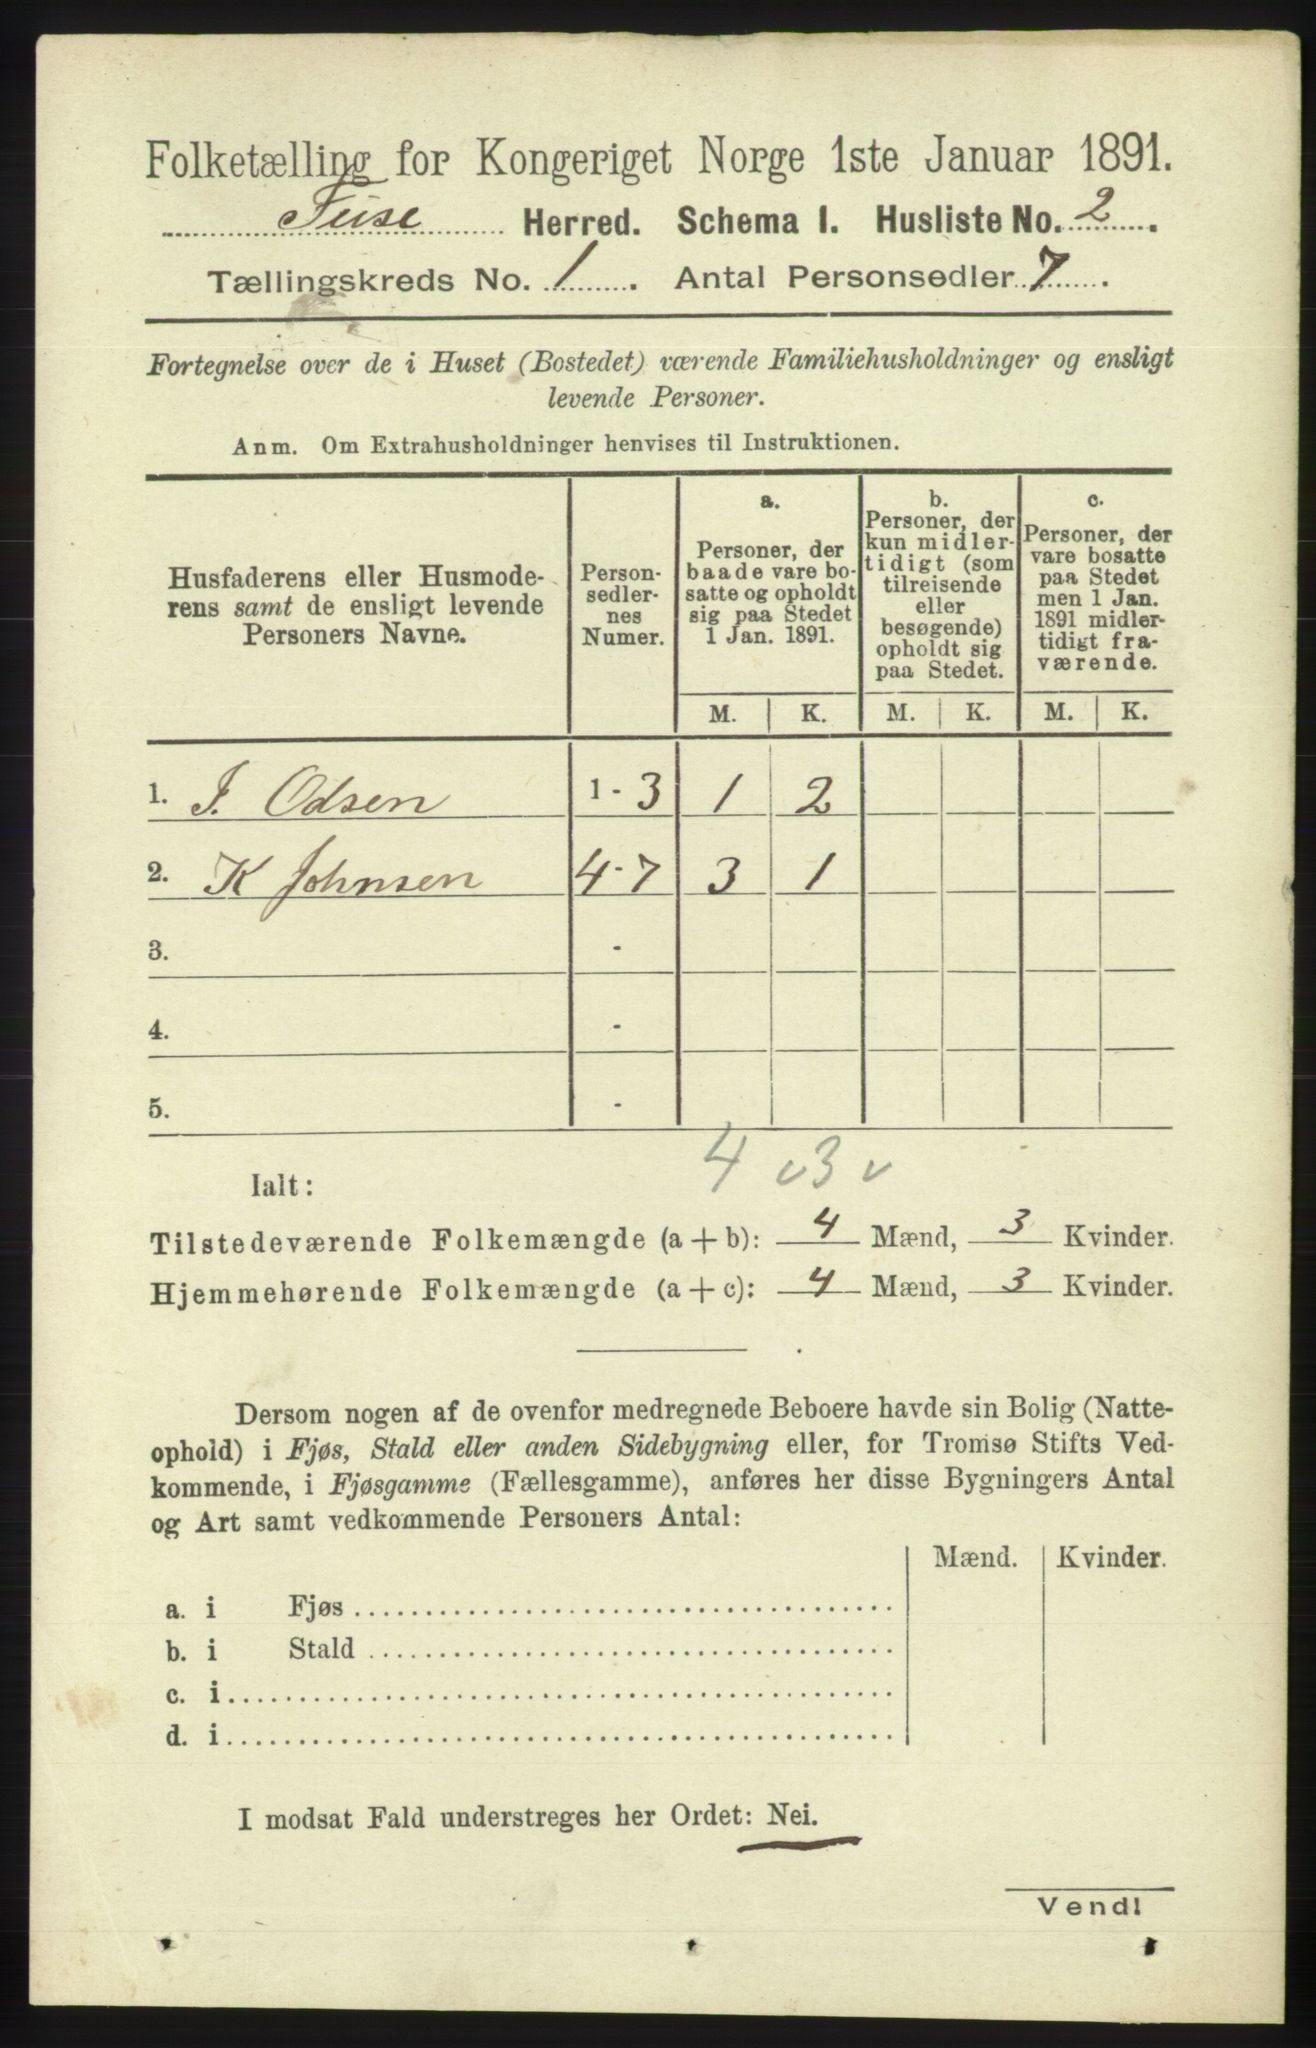 Folketælling for Kongeriget Norge 1ste Januar 1891.
Fuse Herred. Schema I. Husliste No. 2.
Tællingskreds No. 1. Antal Personsedler 7.
Fortegnelse over de i Huset (Bostedet) værende Familiehusholdninger og ensligt
levende Personer.
Anm. Om Extrahusholdninger henvises til Instruktionen.
Husfaderens eller Husmode-
rens samt de ensligt levende
Personers Navne.
Person-
sedler-
nes
Numer.
a.
Personer, der
baade vare bo-
satte og opholdt
sig paa Stedet
1 Jan. 1891.
b.
Personer, der
kun midler-
tidigt (som
tilreisende
eller
besøgende)
opholdt sig
paa Stedet.
c.
Personer, der
vare bosatte
paa Stedet
men 1 Jan.
1891 midler-
tidigt fra-
værende.
M. K. M. K. M. K.
1. J. Odsen 1 - 3 1 2
2. K Johnsen 4 - 7 3 1
3. -
4. -
5. -
4 v 3 v
Ialt:
Tilstedeværende Folkemængde (a + b): 4 Mænd, 3 Kvinder.
Hjemmehørende Folkemængde (a + c): 4 Mænd, 3 Kvinder.
Dersom nogen af de ovenfor medregnede Beboere havde sin Bolig (Natte-
ophold) i Fjøs, Stald eller anden Sidebygning eller, for Tromsø Stifts Ved-
kommende, i Fjøsgamme (Fællesgamme), anføres her disse Bygningers Antal
og Art samt vedkommende Personers Antal:
Mænd. Kvinder.
a. i Fjøs
b. i Stald
c. i
d. i
I modsat Fald understreges her Ordet: Nei.
Vend!